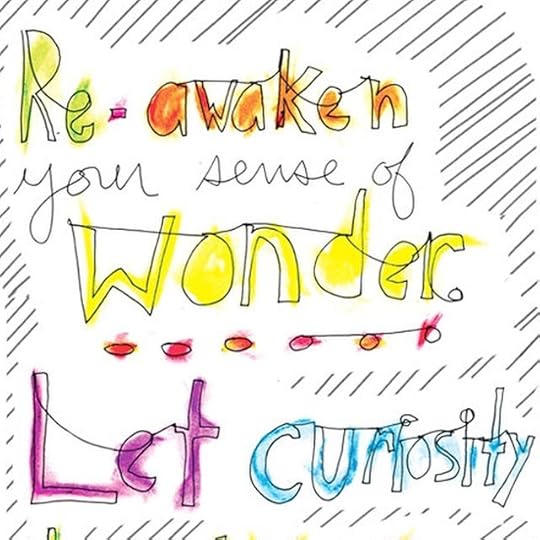 Re-awaken
your sense of
Wonder.
Let curiosity